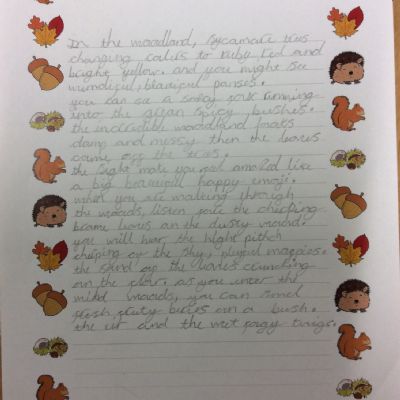 In the woodland, sycamore trees
changing coulers to ruby red and
bright yellow. and you might see
wonderful, beautiful
you can see a running
into the green spicy bushes.
the incredible woodland
damp and messy then the leaves
come off the trees.
the light make you amazed like
a big beautiful happy emoji.
when you are walking through
the woods, listen the chirping
leaves on the dusty
you will hear the hight pitch
chirping of the shy, playful magpies.
the sand of the leaves crunching
on the floor. as you enter the
wild woods, you can smel
fresh fruty buries on a bush.
the and the wet twigs.